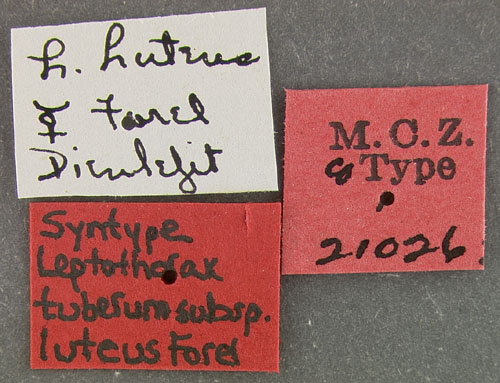 L. luteus
☿ Forel
Dieulefit
M.C.Z.
Type
21026
Syntype
Leptothorax
tuberum subsp.
luteus Forel